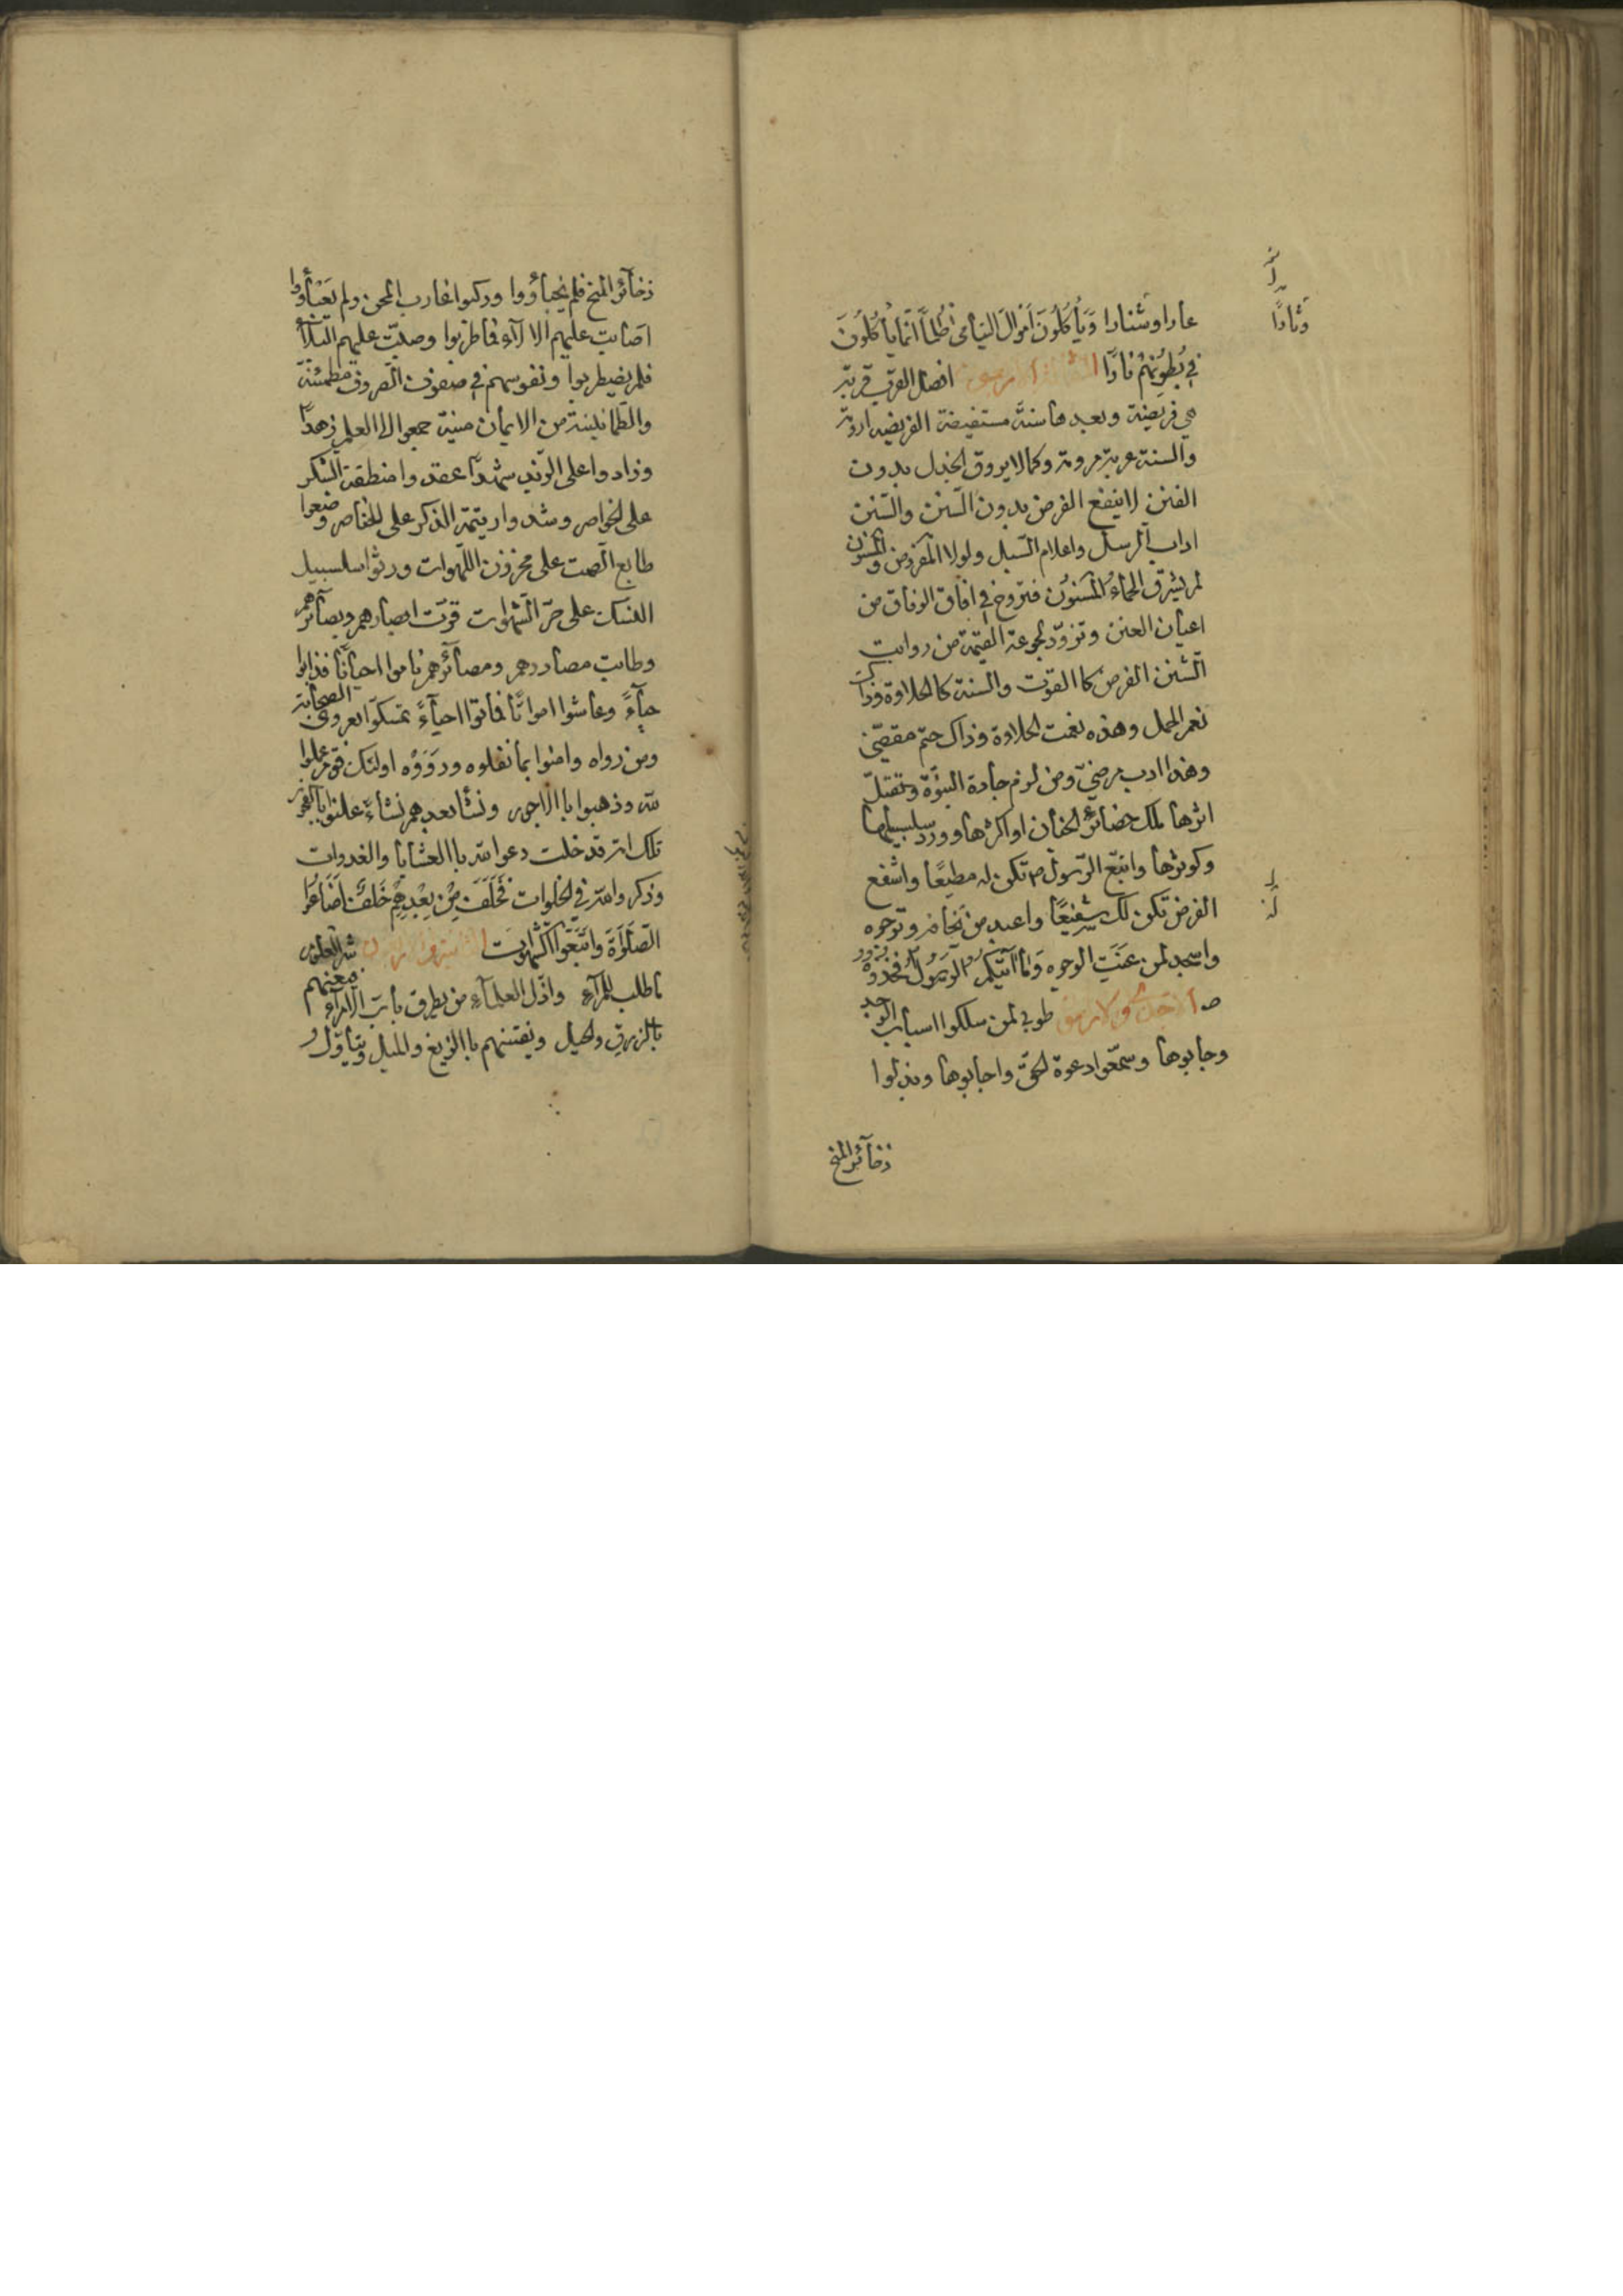 عارا وشنارا وَيَأْكُلُونَ اَمْوَالَ اليَتَامٰى ظُلْمًا اَنَّمَا يَأْكُلُونَ
فِي بُطُونِهِمْ نَارًا افضل القرب قربة
هي فريضة وبعدها سنة مستفيضة الفريضه اروية
والسنة عربة مروية وكما لا يروق الخبل بدون
الفنن لا ينفع الفرض بدون السّنن والسّنن
اداب الرسل واعلام السّبل ولولا المفروض والمسنون
لم يشرق الحماءُ المسنُون فتروّح في افاق الوفاق من
اعيان العنن وتزوّد لجوعة القيمة من رواتب
السّنن الفرض كا القوت والسنة كا الحلاوة وذاك
نعم الحمل وهذه نعمت الحلاوة وذاك حتم مقضيّ
وهذا ادب مرضيّ ومن لزم جادة النبوّة وتقبّل
اثرها ملك حضائر الجنان او اكثرها وورد سلسبيلها
وكوثرها واتبع الرّسول ص تكن له مطيعًا واشفع
الفرض تكن لك شفيعًا واعبد من تخافه وترجوه
واسجد لمن عنَتِ الوجوه وَمَا آتَيكُمُ الرَّسُولُ فَخُذُوهُ
طوبى لمن سلكوا اسباب الوجد
وجابوها وسمّعوا دعوة الحق واجابوها وبذلوا
ذخآئر المنح
وثارًا
ذخآئر المنح فلم يخبأووا وركبوا غارب المحن ولم يَعْبَأووا
اصابت عليهم الا الآء فما طربوا وصبّت عليهم البلآء
فلم يضطربوا ونفوسهم في صفوف الصروف مطمئنة
والطمانينة من الايمان مئنة جمعوا الى العلم زهدًا
وزادوا على الزّبد شهدًا عقدوا منطقة الشكر
على الخواصر وشدوا ريتمة الذكر على الخناصر وضعوا
طابع الصمت على مخزون اللّهوات ورشوا سلسبيل
النسك على حرّ الشهوات قرّت ابصارهم وبصآئرهم
وطابت مصادرهم ومصآئرهم ناموا احيانًا فذابوا
حيآءً وعاشوا امواتًا فماتوا احيآءً تمسكّوا بعروة الصحابة
ومن رواه وامنوا بما نقلوه ورَوَوْه اولئك قوم عملوا
لله وذهبوا با الاجور ونشأ بعدهم نشاءٌ علنوا بالفجور
تلك امة قد خلت دعوا لله با العشايا والغدوات
وذكروا الله في الخلوات فَخَلَفَ مِنْ بَعْدِهِمْ خَلَفٌ اَضَاعُوا
الصَّلٰوةَ وَاتَّبَعُوا الشَّهَوٰتِ شر العلوم
ما طلب للمرآء واذّل العلمآءِ من يطرق باب الامرآء يتبعهم
بالزرق والحيل ويفتنهم با الزيغ والميل ويتأوّل